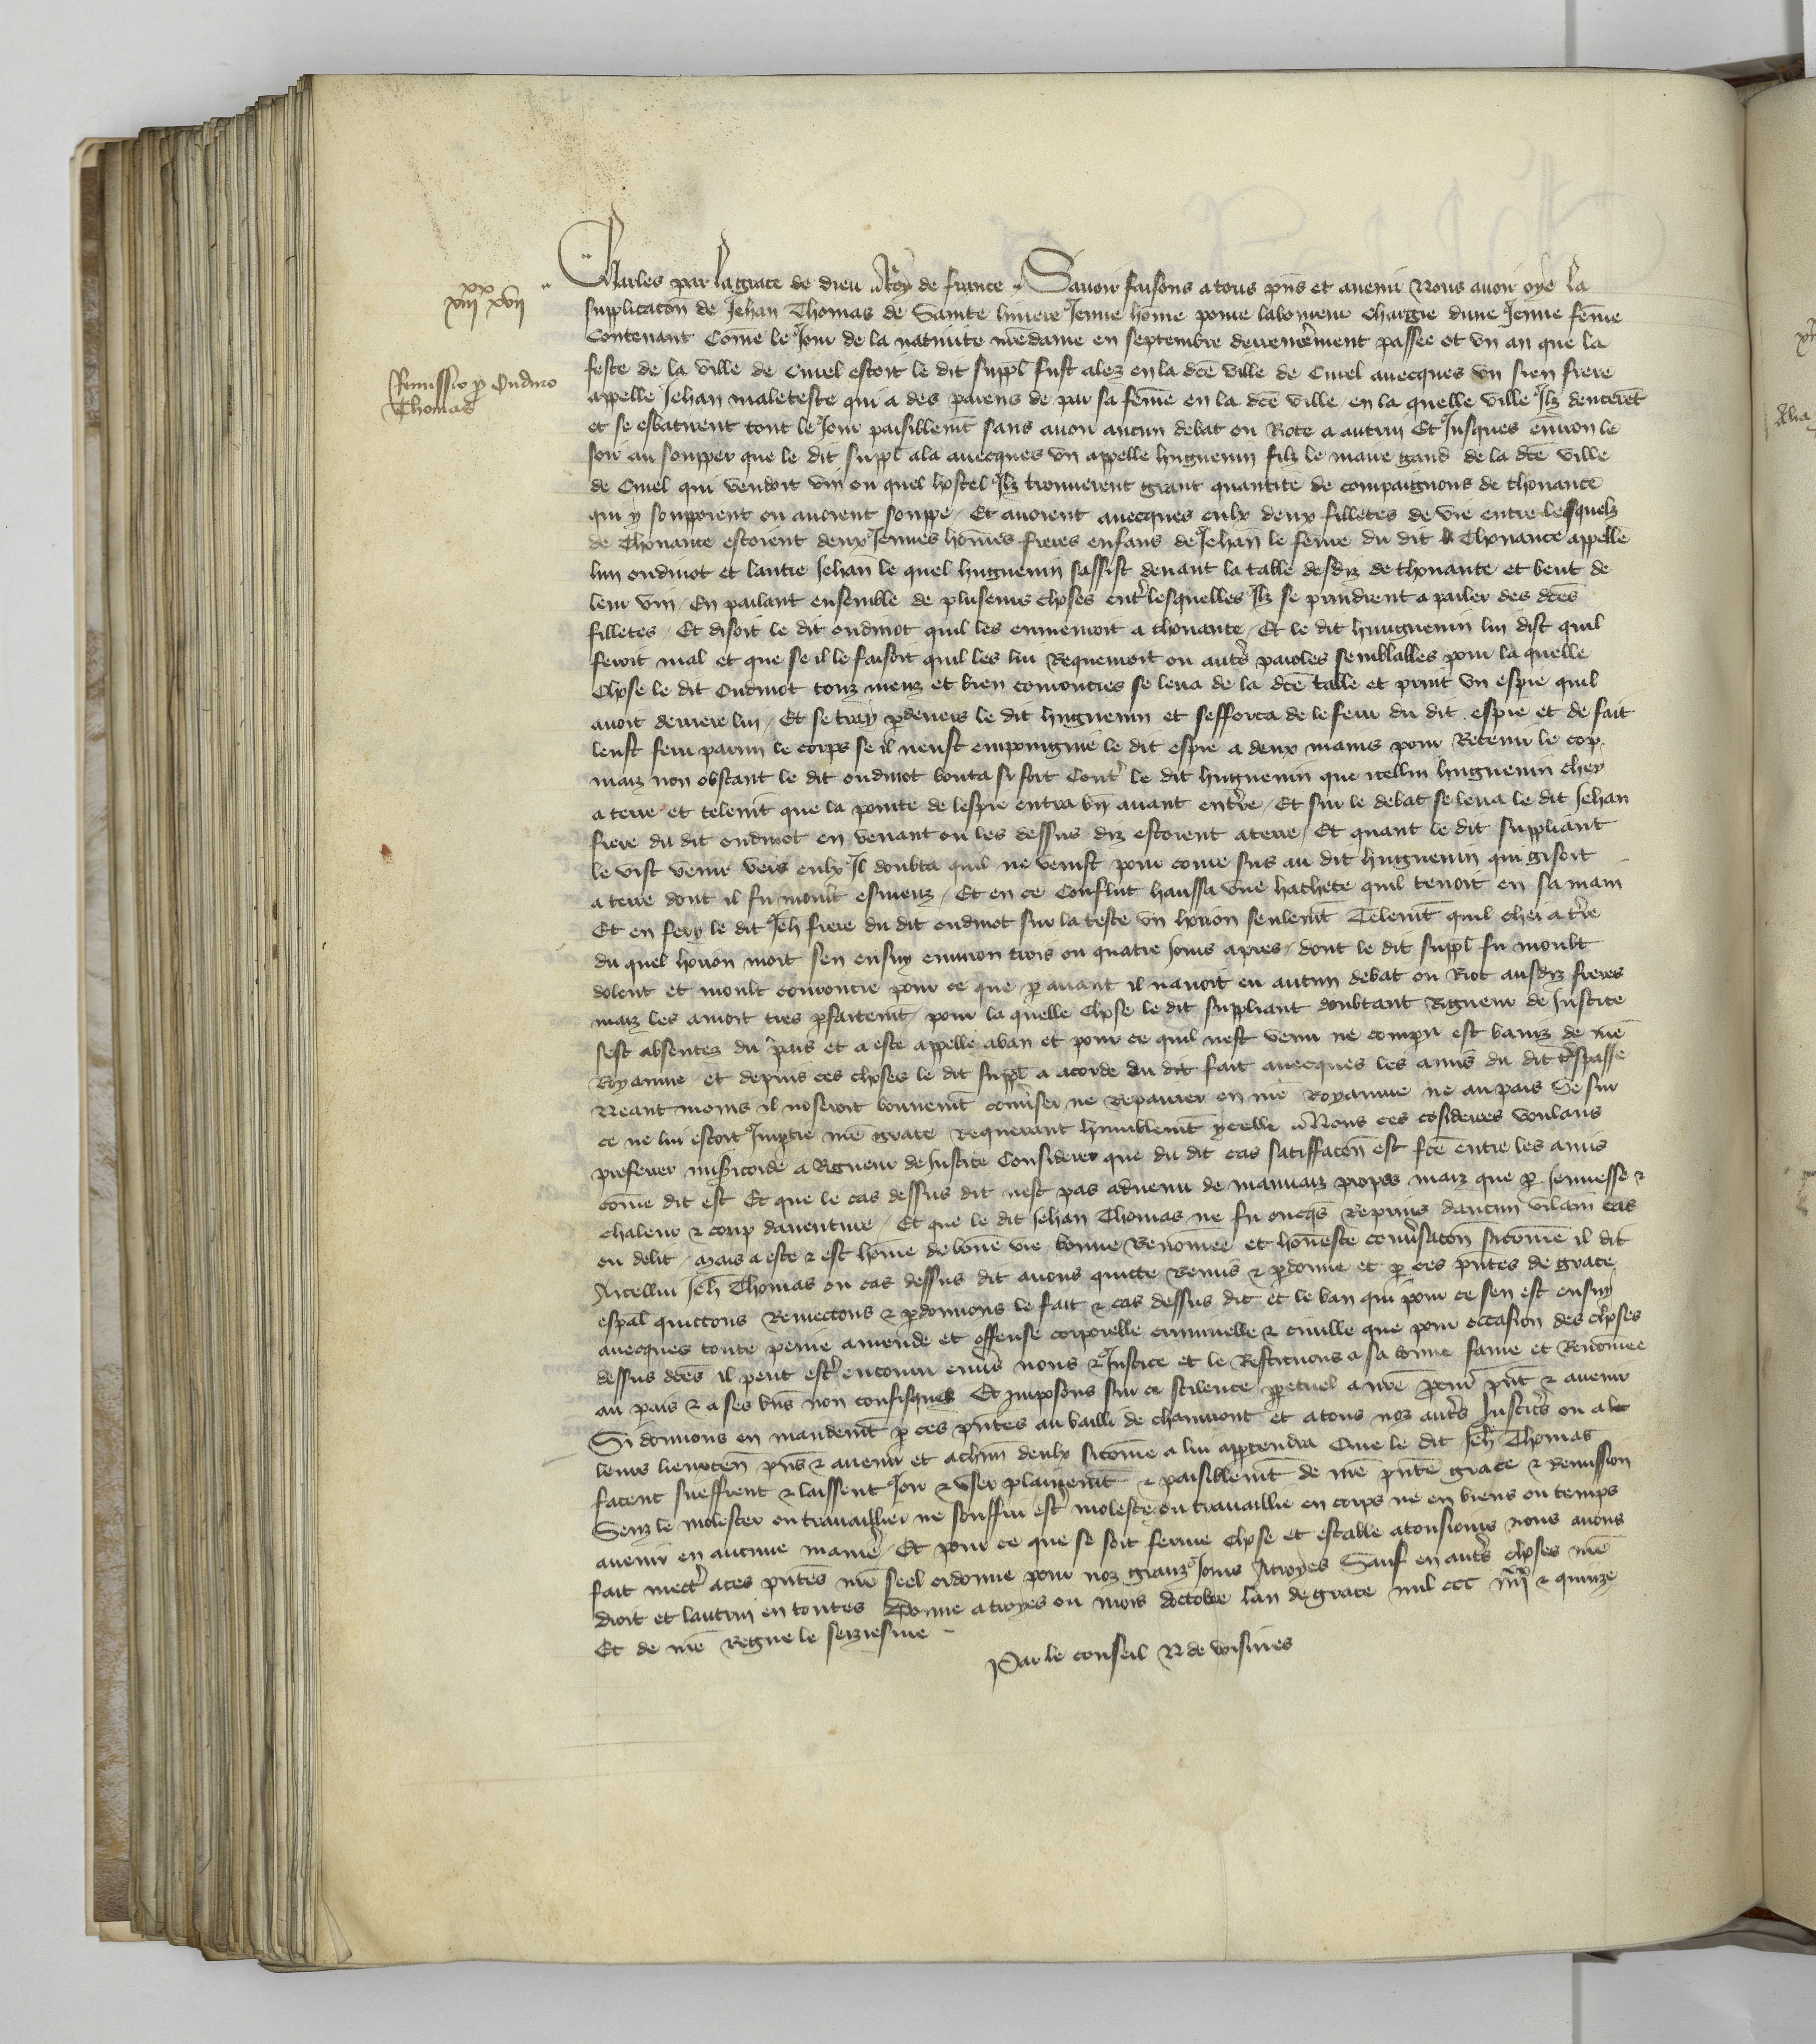 xiiii xx xvii
Charles par la grace de dieu Roy de france Savoir faisons a tous pn̄s et avenir Nous avoir oye la
supplicacōn de Jehan Thomas de Sainte liviere Jeune hōme povre laboureur chargie dune Jeune fēme
Contenant Cōme le Jour de la nativite nr̄e dame en septembre derrenierement passee ot un an que la
Remissio p Oudino
Thomas
feste de la ville de Cuiel estoit le dit suppl̄ fust alez en la dcē ville de Cuiel avecques un sien frere
appelle Jehan maleteste qui a des parens de par sa fēme en la dcē ville en la quelle ville Ilz
et se esbatirent tout le Jour paisiblemt̄ sans avoir aucun debat ou Riote a autrui Et Jusques environ le
soir au soupper que le dit suppl̄ ala avecques un appelle huguenin filz le maire de la dcē ville
de Cuiel qui vendoit vin ou quel hostel Ilz trouverent grant quantite de compaignons de thonance
qui y souppoient ou avoient souppe Et avoient avecques eulx deux filletes de vie entre lesquelz
de Thonance estoient deux Jeunes hōmes freres enfans de Jehan le fevre du dit Thonance appelle
lun oudinot et lautre Jehan le quel huguenin sassist devant la table desdiz de thonance et beut de
leur vin En parlant ensemble de pluseurs choses entr̄ lesquelles Ilz se prindrent a parler des dcēs
filletes Et disoit le dit oudinot quil les enmenroit a thonance Et le dit huuguenin lui dist quil
feroit mal et que se il le faisoit quil les lui Requerroit ou autrēs paroles semblables pour la quelle
chose le dit Oudinot touz meuz et bien courouciés se leva de la dcē table et print un espie quil
avoit derriere lui Et se tray p̱devers le dit huguenin et sefforca de le ferir du dit espie et de fait
leust feru parmi le corps se il neust empoingnie le dit espie a deux mains pour Retenir le cop
maiz non obstant le dit oudinot bouta si fort Contr̄ le dit huguenin que icellui huguenin chey
a terre et telemt̄ que la pointe de lespie entra bn̄ avant en tr̄re Et sur le debat se leva le dit Jehan
frere du dit oudinot en venant ou les dessus diz estoient a terre Et quant le dit suppliant
le vist venir vers eulx Il doubta quil ne venist pour corre sus au dit huguenin qui gisoit
a terre dont il fu moult esmeuz Et en ce Conflict haussa une hachete quil tenoit en sa main
Et en fery le dit Jeh̄ frere du dit oudinot sur la teste un horion seulemt̄ Telemt̄ quil chei a tr̄re
du quel horion mort sen ensuy environ trois ou quatre Jours apres dont le dit suppl̄ fu moult
dolent et moult courroucie pour ce que p̱ avant il navoit eu aucun debat ou Riot ausdiz freres
maiz les amoit tres p̱faitemt̄ pour la quelle chose le dit suppliant doubtant Rigueur de Justice
sest absentez du pais et a este appelle a ban et pour ce quil nest venu ne compu est baniz de nr̄e
Royaume et depuis ces choses le dit suppl̄ a acorde du dit fait avecques les amis du dit tr̄spasse
Neant moins il noseroit bonnemt̄ conv̄ser ne Repairer en nr̄e Royaume ne au pais Se sur
ce ne lui estoit Imp̱tie nr̄e grace Requerant humblemt̄ ycelle Nous ces cōsiderees voulans
preferer mis̄icorde a Rigueur de Justice Considere que du dit cas satiffacōn est fcē entre les amis
cōme dit est Et que le cas dessus dit nest pas advenu de mauvaiz propos maiz que p̱ Jeunesse &
chaleur & coup daventure Et que le dit Jehan Thomas ne fu oncqs̄ Reprins daucun vilain cas
ou delit Mais a este & est hōme de bonē vie bonne Renōmee et honneste conv̄sacōn sicōme il dit
A icellui Jeh̄ Thomas ou cas dessus dit avons quicte Remis & p̱donne et p̱ ces pn̄tes de grace
esp̱al quictons Remectons & p̱donnons le fait & cas dessus dit et le ban qui pour ce sen est ensuy
avecques toute peine amende et offense corporelle criminelle & civille que pour occasion des choses
dessus dcēs il peut estr̄ encouru env̄s nous & Justice et le Restituons a sa bonne fame et Renōmee
au pais & a ses bn̄s non confisquez Et imposons sur ce scilence p̱petuel a nr̄e procur̄ pn̄t & avenir
Si donnons en mandemt̄ p̱ ces pn̄tes au bailli de chaumont et a tous noz autr̄s Justic̄rs ou a
leurs lieuxten̄ pn̄s & avenir et a chūn deulx sicōme a lui app̱tendra Que le dit Jeh̄ Thomas
facent sueffrent & laissent Joir & user plainemt̄ & paisiblemt̄ de nr̄e pn̄te grace & Remission
Senz le molester ou travaillier ne souffrir estr̄ moleste ou travaillie en corps ne en biens ou temps
avenir en aucune manier̄ Et pour ce que se soit ferme chose et estable a tousiours nous avons
fait mectr̄ a ces pn̄tes nr̄e seel ordonne pour noz granz Jours a troyes Sauf en autr̄s choses nr̄e
droit et lautrui en toutes Donne a troyes ou mois doctobre lan de grace mil ccc iiii xx & quinze
Et de nr̄e Regne le seiziesme
Par le conseil N de voisines